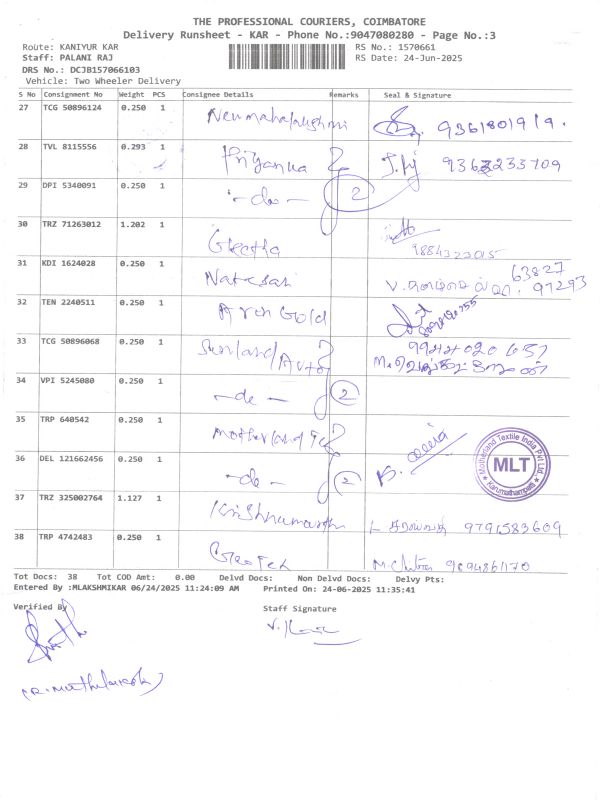 THE PROFESSIONAL COURIERS, COIMBATORE
Delivery Runsheet - KAR - Phone No.:9047080280 - Page No.:3
Route: KANIYUR KAR
RS No.: 1570661
Staff: PALANI RAJ
RS Date: 24-Jun-2025
DRS No.: DCJB157066103
Vehicle: Two Wheeler Delivery
S No Consignment No Weight PCS Consignee Details Remarks Seal & Signature
27 TCG 50896124 0.250 1
28 TVL 8115556 0.293 1 Priyanka 9363233709
29 DPI 5340091 0.250 1 - do - 2
30 TRZ 71263012 1.202 1 Geetha 9884322015
31 KDI 1624028 0.250 1 Natesan 63827 97293
32 TEN 2240511 0.250 1 Arun Gold
33 TCG 50896068 0.250 1 Sunland Auto
34 VPI 5245080 0.250 1 - do - 2
35 TRP 640542 0.250 1 Motherland Tex
36 DEL 121662456 0.250 1 - do - 2
Motherland Textile India Pvt Ltd.
MLT
Karumathampatti
37 TRZ 325002764 1.127 1 Krishnamoorthy 9791583609
38 TRP 4742483 0.250 1 9894861170
Tot Docs: 38 Tot COD Amt: 0.00 Delvd Docs: Non Delvd Docs: Delvy Pts:
Entered By :MLAKSHMIKAR 06/24/2025 11:24:09 AM Printed On: 24-06-2025 11:35:41
Verified By
Staff Signature